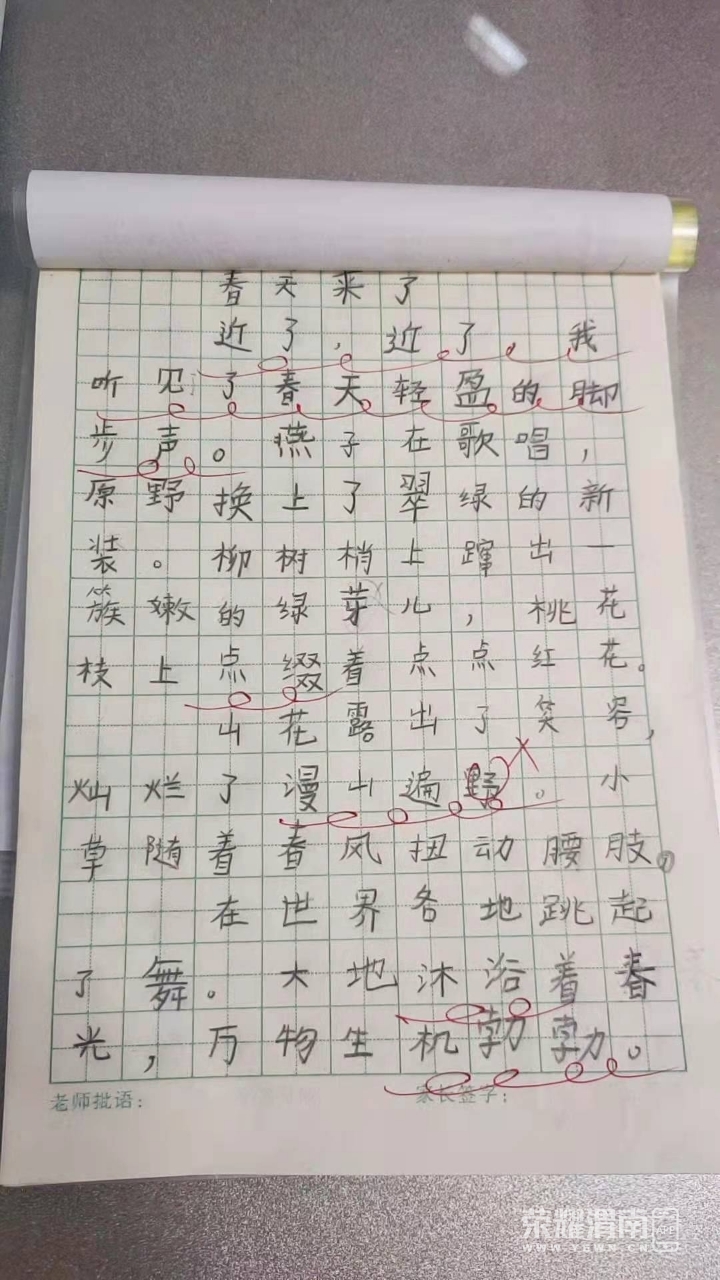 春天来了
近了，近了，我
听见了春天轻盈的脚
步声。燕子在歌唱，
原野换上了翠绿的新
装。柳树梢上蹿出一
簇嫩的绿芽儿，桃花
枝上点缀着点点红花。
山花露出了笑容，
灿烂了漫山遍野。小
草随着春风扭动腰肢。
在世界各地跳起
了舞。大地沐浴着春
光，万物生机勃勃。
老师批语：
家长签字：
荣耀渭南
WWW.YSWN.CN